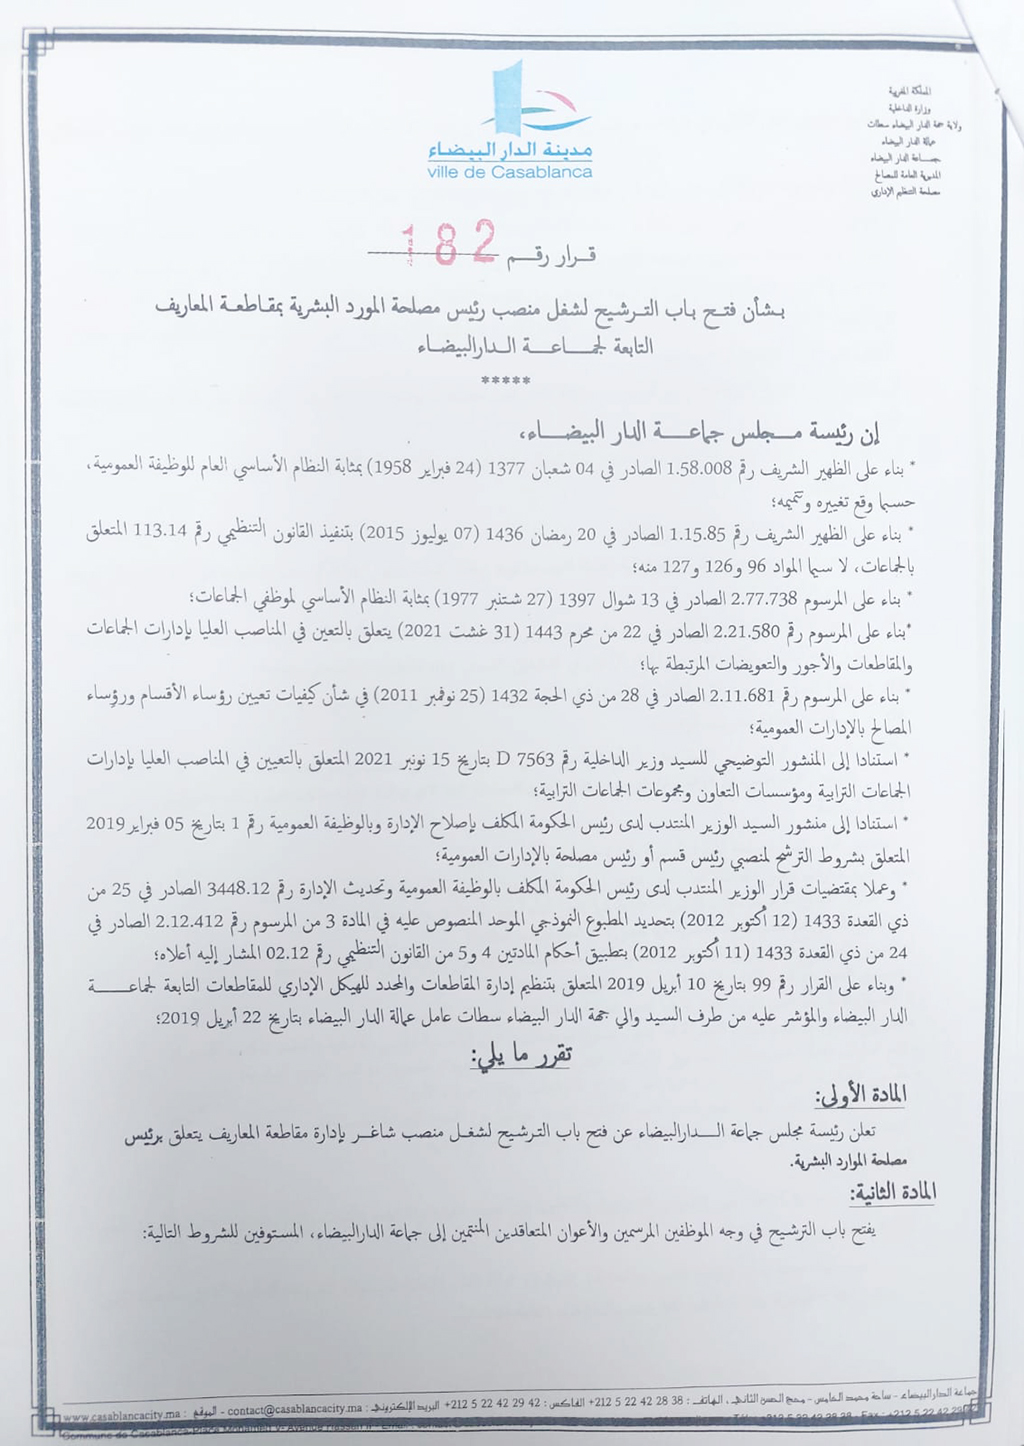 المملكة المغربية
وزارة الداخلية
ولاية جهة الدار البيضاء سطات
عمالة الدار البيضاء
جماعة الدار البيضاء
المديرية العامة للمصالح
مصلحة التنظيم الإداري
مدينة الدار البيضاء
ville de Casablanca
قرار رقم 182
بشأن فتح باب الترشيح لشغل منصب رئيس مصلحة المورد البشرية بمقاطعة المعاريف
التابعة لجماعة الدارالبيضاء
*****
إن رئيسة مجلس جماعة الدار البيضاء،
* بناء على الظهير الشريف رقم 1.58.008 الصادر في 04 شعبان 1377 (24 فبراير 1958) بمثابة النظام الأساسي العام للوظيفة العمومية،
حسبما وقع تغييره وتتميمه؛
* بناء على الظهير الشريف رقم 1.15.85 الصادر في 20 رمضان 1436 (07 يوليوز 2015) بتنفيذ القانون التنظيمي رقم 113.14 المتعلق
بالجماعات، لا سيما المواد 96 و126 و127 منه؛
* بناء على المرسوم رقم 2.77.738 الصادر في 13 شوال 1397 (27 شتنبر 1977) بمثابة النظام الأساسي لموظفي الجماعات؛
*بناء على المرسوم رقم 2.21.580 الصادر في 22 من محرم 1443 (31 غشت 2021) يتعلق بالتعين في المناصب العليا بإدارات الجماعات
والمقاطعات والأجور والتعويضات المرتبطة بها؛
* بناء على المرسوم رقم 2.11.681 الصادر في 28 من ذي الحجة 1432 (25 نوفمبر 2011) في شأن كيفيات تعيين رؤساء الأقسام ورؤساء
المصالح بالإدارات العمومية؛
* استنادا إلى المنشور التوضيحي للسيد وزير الداخلية رقم D 7563 بتاريخ 15 نونبر 2021 المتعلق بالتعيين في المناصب العليا بإدارات
الجماعات الترابية ومؤسسات التعاون ومجموعات الجماعات الترابية؛
* استنادا إلى منشور السيد الوزير المنتدب لدى رئيس الحكومة المكلف بإصلاح الإدارة وبالوظيفة العمومية رقم 1 بتاريخ 05 فبراير 2019
المتعلق بشروط الترشح لمنصبي رئيس قسم أو رئيس مصلحة بالإدارات العمومية؛
* وعملا بمقتضيات قرار الوزير المنتدب لدى رئيس الحكومة المكلف بالوظيفة العمومية وتحديث الإدارة رقم 3448.12 الصادر في 25 من
ذي القعدة 1433 (12 أكتوبر 2012) بتحديد المطبوع النموذجي الموحد المنصوص عليه في المادة 3 من المرسوم رقم 2.12.412 الصادر في
24 من ذي القعدة 1433 (11 أكتوبر 2012) بتطبيق أحكام المادتين 4 و5 من القانون التنظيمي رقم 02.12 المشار إليه أعلاه؛
* وبناء على القرار رقم 99 بتاريخ 10 أبريل 2019 المتعلق بتنظيم إدارة المقاطعات والمحدد للهيكل الإداري للمقاطعات التابعة لجماعة
الدار البيضاء والمؤشر عليه من طرف السيد والي جهة الدار البيضاء سطات عامل عمالة الدار البيضاء بتاريخ 22 أبريل 2019؛
تقرر ما يلي:
المادة الأولى:
تعلن رئيسة مجلس جماعة الدارالبيضاء عن فتح باب الترشيح لشغل منصب شاغر بإدارة مقاطعة المعاريف يتعلق برئيس
مصلحة الموارد البشرية.
المادة الثانية:
يفتح باب الترشيح في وجه الموظفين المرسمين والأعوان المتعاقدين المنتمين إلى جماعة الدارالبيضاء، المستوفين للشروط التالية:
جماعة الدارالبيضاء - ساحة محمد الخامس - محج الحسن الثاني. الهاتف : 38 28 42 22 5 212+ الفاكس : 42 29 42 22 5 212+ البريد الإلكتروني : contact@casablancacity.ma - الموقع : www.casablancacity.ma
Commune de Casablanca